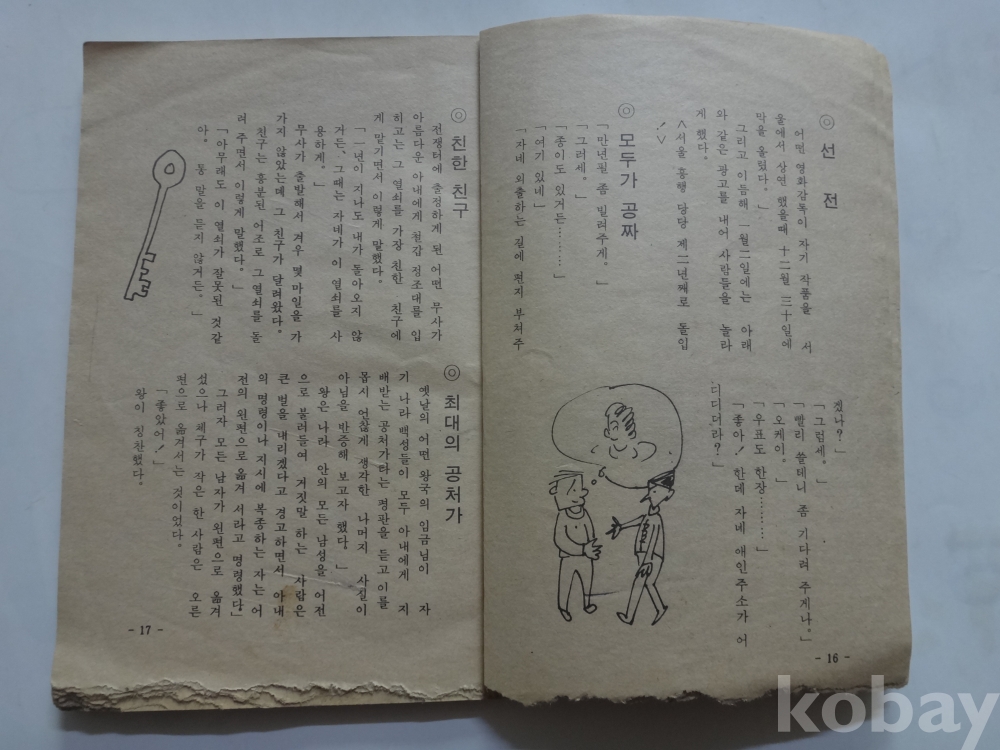 ◎ 선 전
어떤 영화감독이 자기 작품을 서
울에서 상연했을때 十二월 三十일에
막을 올렸다。」
그리고 이듬해 一월二일에는 아래
와 같은 광고를 내어 사람들을 놀라
게 했다。
<서울 흥행 당당 제二년째로 돌입
!>
◎ 모두가 공짜
「만년필 좀 빌려주게。」
「그러세。」
「종이도 있거든………」
「여기 있네」
「자네 외출하는 길에 편지 부쳐주
겠나?」
「그럼세。」
「빨리 쓸테니 좀 기다려 주게나。」
「오케이。」
「우표도 한장………」
「좋아! 한데 자네 애인주소가 어
디더라?」
- 16 -
◎ 친한 친구
전쟁터에 출정하게 된 어떤 무사가
아름다운 아내에게 철갑 정조대를 입
히고는 그 열쇠를 가장 친한 친구에
게 맡기면서 이렇게 말했다。
「一년이 지나도 내가 돌아오지 않
거든、그때는 자네가 이 열쇠를 사
용하게。」
무사가 출발해서 겨우 몇마일을 가
가지 않았는데 그 친구가 달려왔다。
친구는 흥분된 어조로 그 열쇠를 돌
려 주면서 이렇게 말했다。」
「아무래도 이 열쇠가 잘못된 것같
아。 통 말을 듣지 않거든。」
◎ 최대의 공처가
옛날의 어떤 왕국의 임금님이 자
기 나라 백성들이 모두 아내에게 지
배받는 공처가라는 평판을 듣고 이를
몹시 언짢게 생각한 나머지 사실이
아님을 반증해 보고자 했다。」
왕은 나라 안의 모든 남성을 어전
으로 불러들여 거짓말 하는 사람은
큰 벌을 내리겠다고 경고하면서 아내
의 명령이나 지시에 복종하는 자는 어
전의 왼편으로 옮겨 서라고 명령했다」
그러자 모든 남자가 왼편으로 옮겨
섰으나 체구가 작은 한 사람은 오른
편으로 옮겨서는 것이었다。
「좋았어!」
왕이 칭찬했다。
- 17 -
kobay